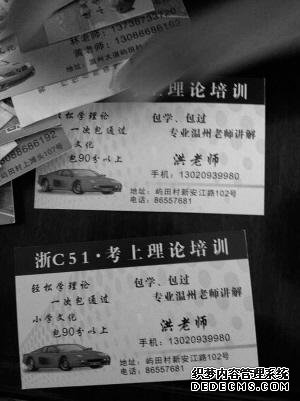 林老师：
手机：13738737120
黄老师：
手机：13088686192
上理论培训
轻松学理论
一次包通过
文化
包90分以上
包学、包过
专业温州老师讲解
洪老师
手机：13020939980
地址：屿田村新安江路102号
电话：86557681
浙C51·考上理论培训
轻松学理论
一次包通过
小学文化
包90分以上
包学、包过
专业温州老师讲解
洪老师
手机：13020939980
地址：屿田村新安江路102号
电话：86557681
织梦内容管理系统
DEDECMS.COM